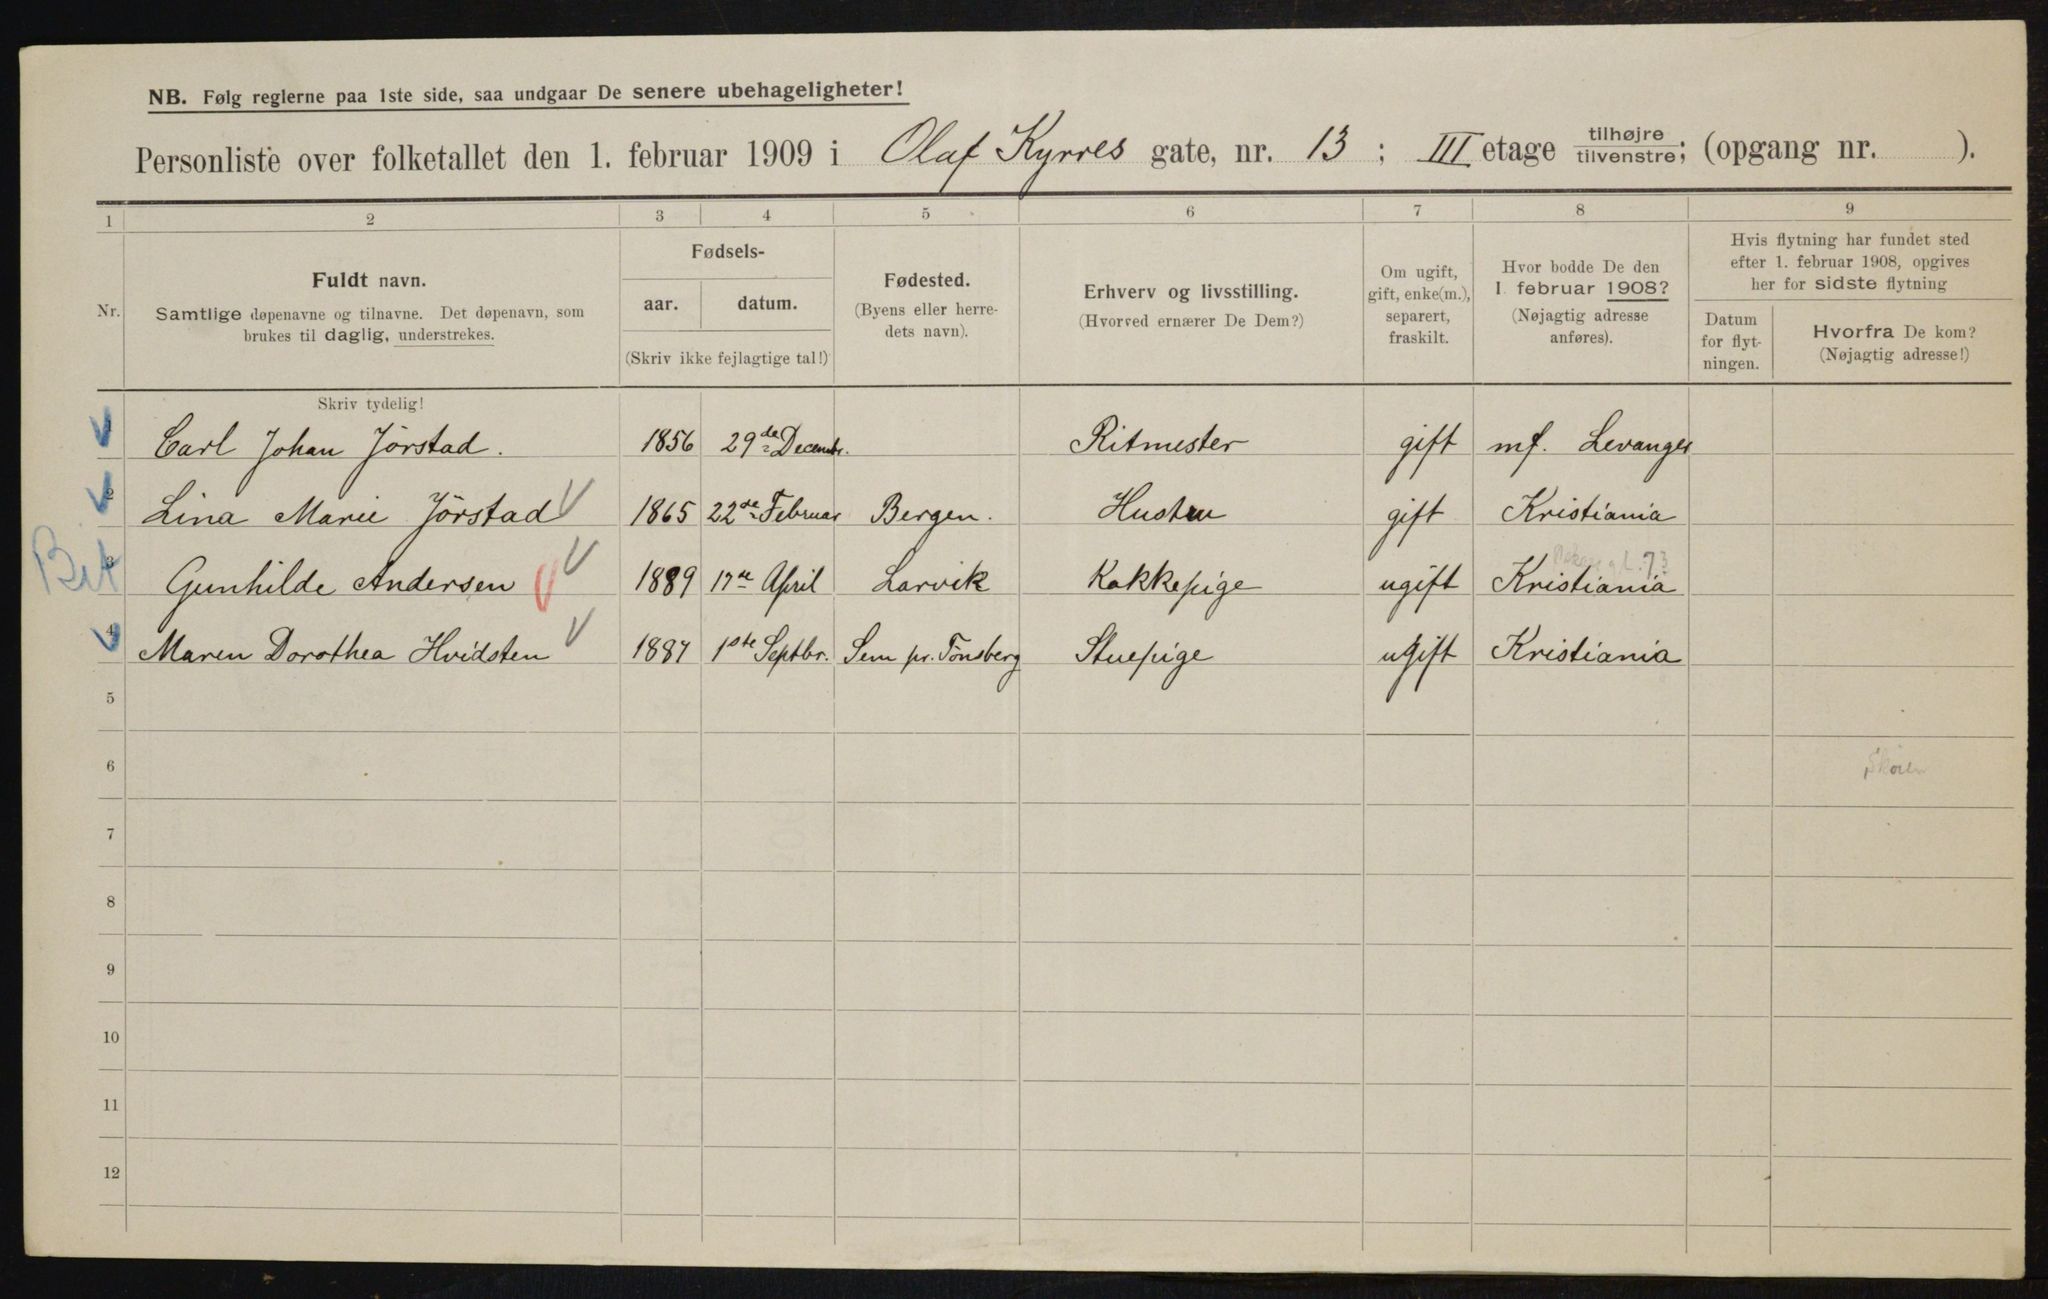 NB. Følg reglerne paa 1ste side, saa undgaar De senere ubehageligheter!
Personliste over folketallet den 1. februar 1909 i Olaf Kyrres gate, nr. 13 ; III etage tilhøjre tilvenstre; (opgang nr. ).
1 2 3 4 5 6 7 8 9
Nr.
Fuldt navn.
Samtlige døpenavne og tilnavne. Det døpenavn, som
brukes til daglig, understrekes.
Fødsels-
aar. datum.
(Skriv ikke fejlagtige tal!)
Fødested.
(Byens eller herre-
dets navn).
Erhverv og livsstilling.
(Hvorved ernærer De Dem?)
Om ugift,
gift, enke(m.),
separert,
fraskilt.
Hvor bodde De den
1. februar 1908?
(Nøjagtig adresse
anføres).
Hvis flytning har fundet sted
efter 1. februar 1908, opgives
her for sidste flytning
Datum
for flyt-
ningen.
Hvorfra De kom?
(Nøjagtig adresse!)
Skriv tydelig!
1 Carl Johan Jörstad. 1856 29de Decembr. Ritmester gift mf. Levanger
2 Lina Marie Jörstad 1865 22de Februar Bergen. Hustru gift Kristiania
Bit 3 Gunhilde Andersen 1889 17de April Larvik Kokkepige ugift Kristiania
4 Maren Dorothea Hvidsten 1887 1ste Septbr. Sem pr. Tönsberg Stuepige ugift Kristiania
5
6
7
8
9
10
11
12